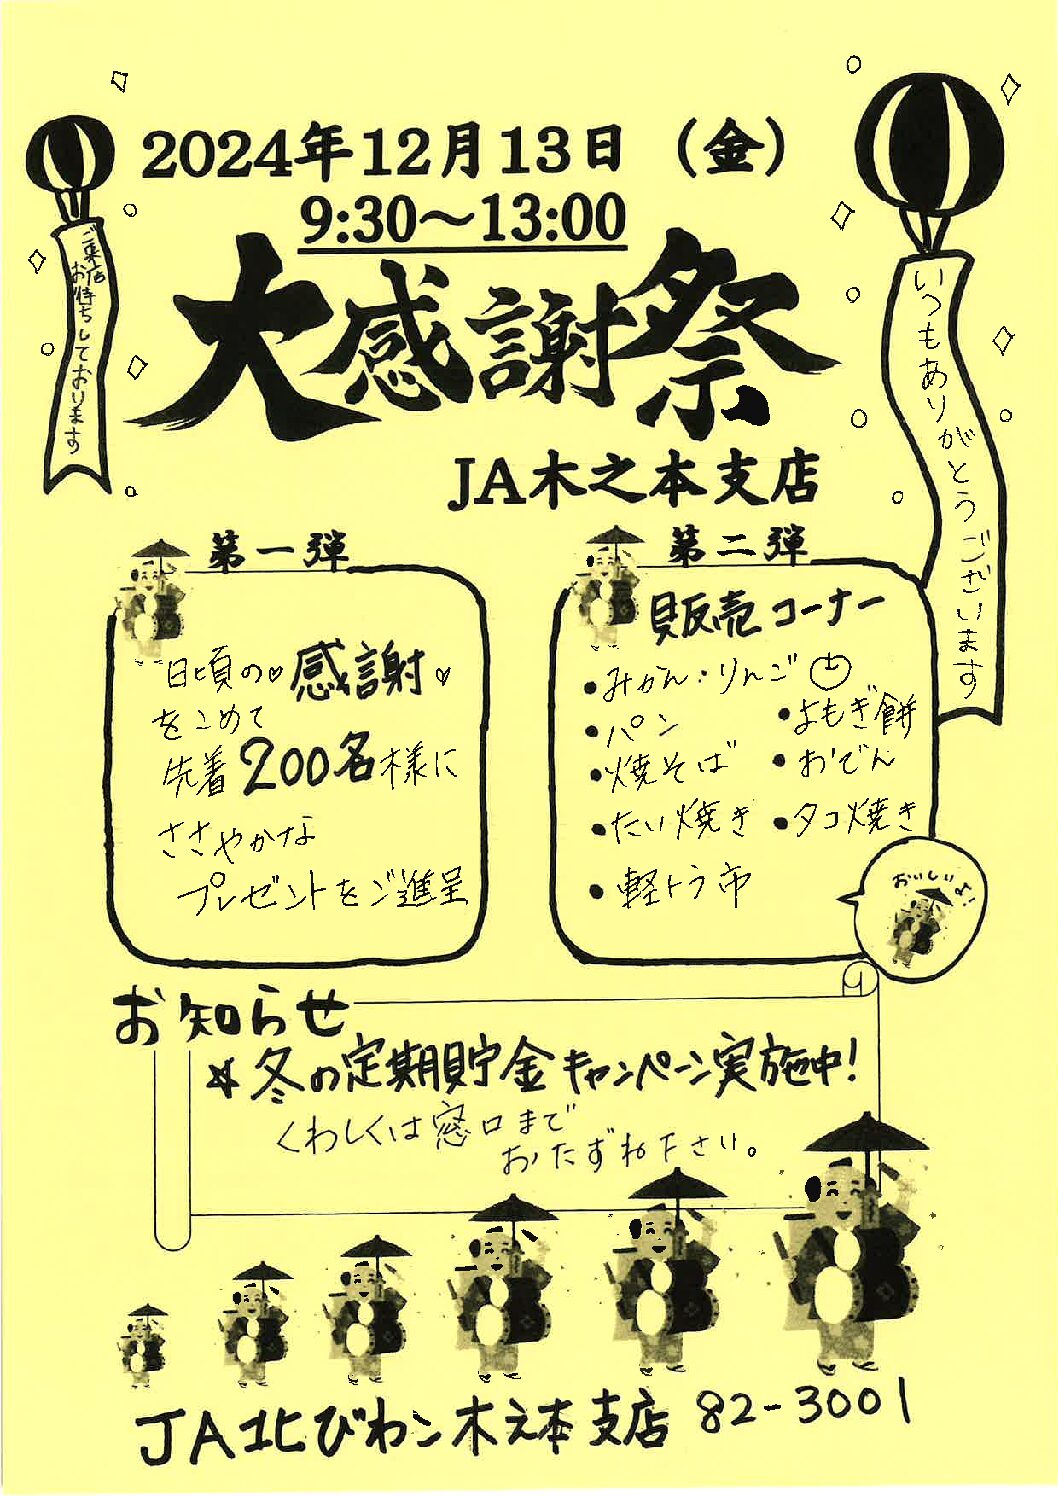 2024年12月13日（金）
9:30～13:00
大感謝祭
JA木之本支店
ご来店
お待ちしております
いつもありがとうございます
第一弾
日頃の♡感謝♡
をこめて
先着200名様に
ささやかな
プレゼントをご進呈
第二弾
販売コーナー
●みかん・りんご
●パン
●よもぎ餅
●焼そば
●おでん
●たい焼き
●タコ焼き
●軽トラ市
おいしいよ！
お知らせ
☆冬の定期貯金キャンペーン実施中！
くわしくは窓口まで
おたずね下さい。
JA北びわこ木之本支店 82-3001